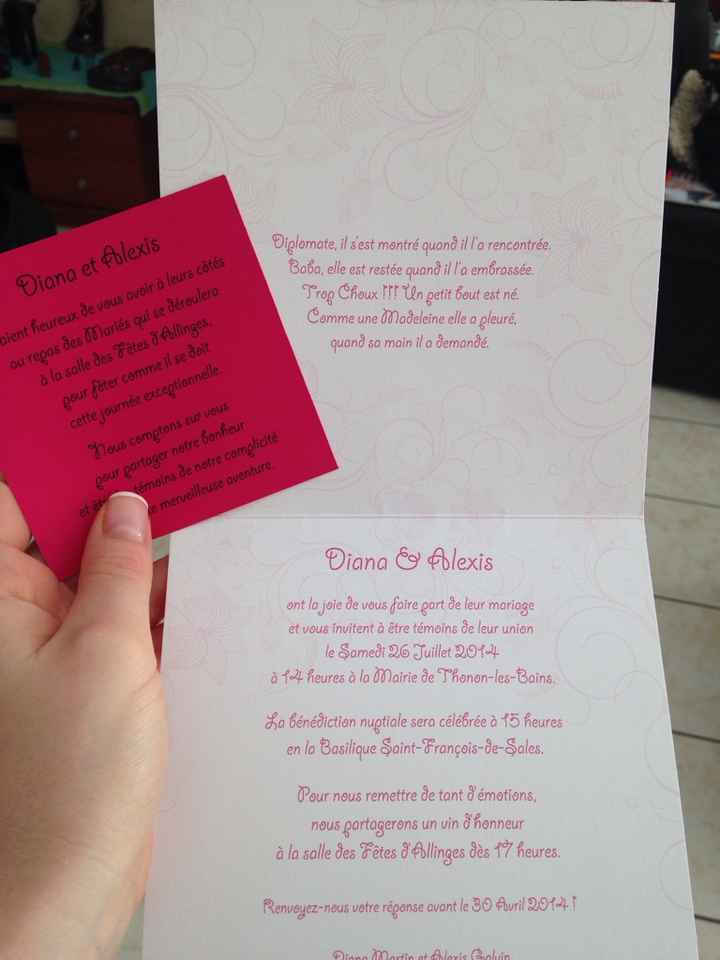 Diana et Alexis
heureux de vous avoir à leurs côtés
au repas des Mariés qui se déroulera
à la salle des Fêtes d'Allinges,
pour fêter comme il se doit
cette journée exceptionnelle.
Nous comptons sur vous
pour partager notre bonheur
témoins de notre complicité
merveilleuse aventure.
Diplomate, il s'est montré quand il l'a rencontrée.
Baba, elle est restée quand il l'a embrassée.
Trop Choux !!! Un petit bout est né.
Comme une Madeleine elle a pleuré,
quand sa main il a demandé.
Diana & Alexis
ont la joie de vous faire part de leur mariage
et vous invitent à être témoins de leur union
le Samedi 26 Juillet 2014
à 14 heures à la Mairie de Thonon-les-Bains.
La bénédiction nuptiale sera célébrée à 15 heures
en la Basilique Saint-François-de-Sales.
Pour nous remettre de tant d'émotions,
nous partagerons un vin d'honneur
à la salle des Fêtes d'Allinges dès 17 heures.
Renvoyez-nous votre réponse avant le 30 Avril 2014 !
Diana Martin et Alexis